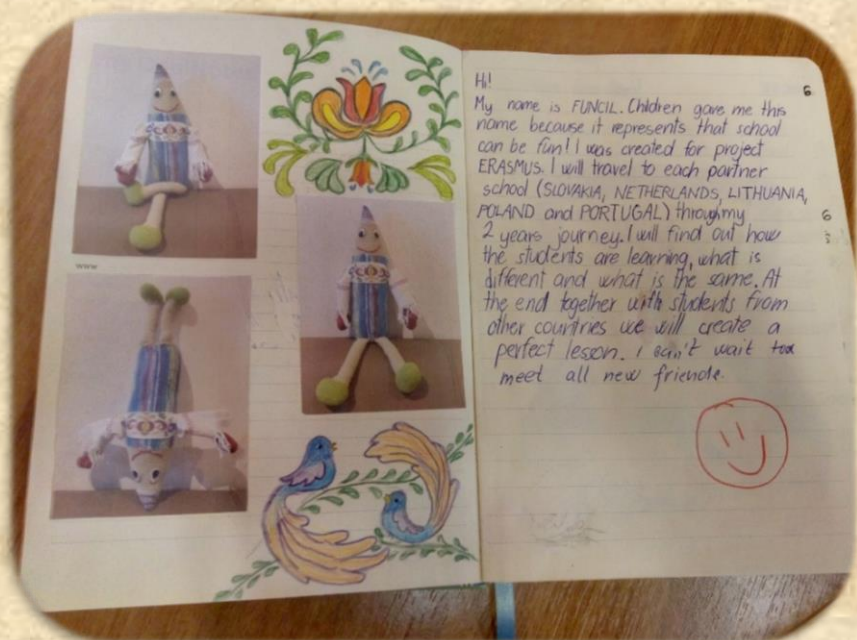 www
Hi!
6
My name is FUNCIL. Children gave me this
name because it represents that school
can be fun! I was created for project
ERASMUS. I will travel to each partner
school (SLOVAKIA, NETHERLANDS, LITHUANIA,
POLAND and PORTUGAL) through my
2 years journey. I will find out how
the students are learning, what is
different and what is the same. At
the end together with students from
other countries we will create a
perfect lesson. I can't wait too
meet all new friends.